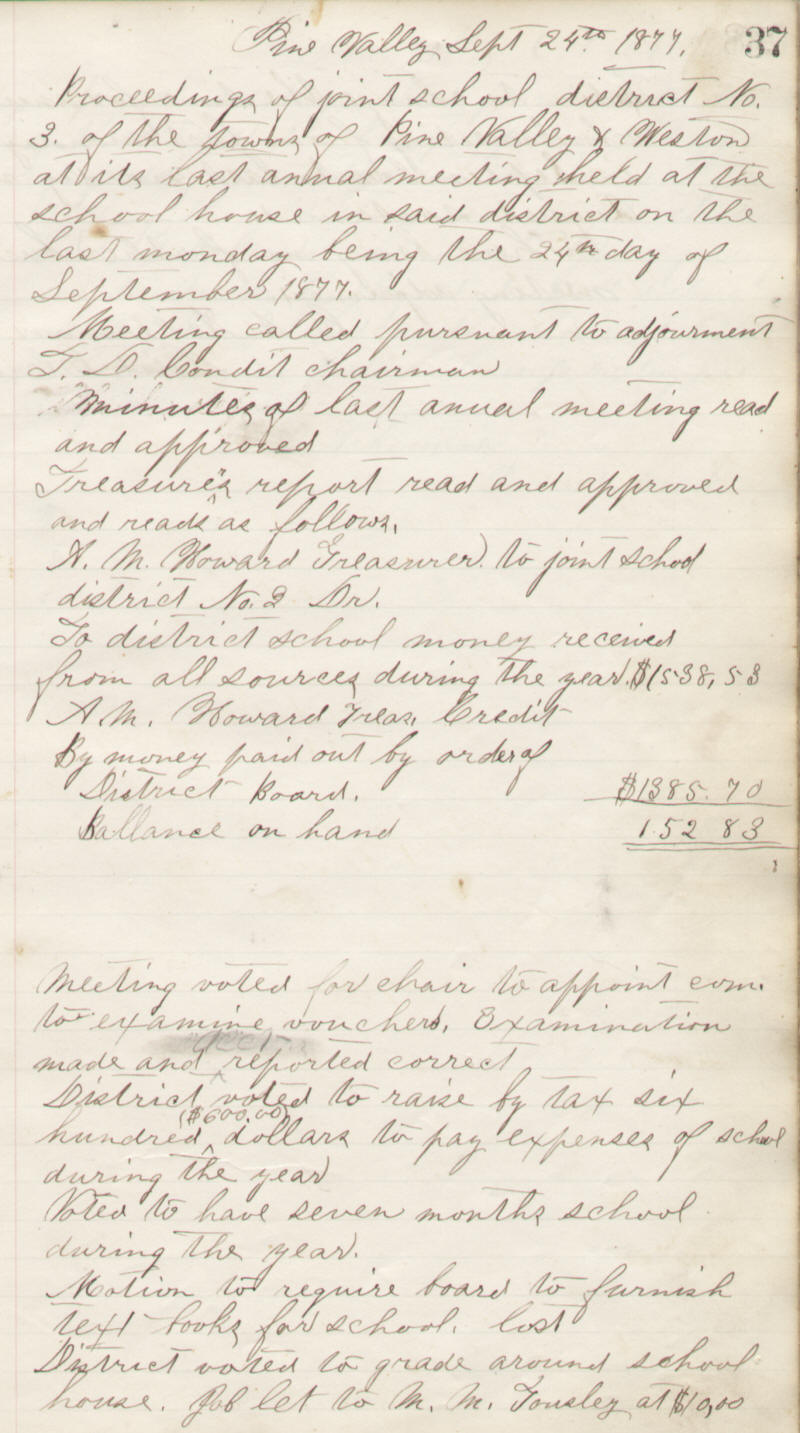 Pine Valley Sept 24th 1877. 37
Proceedings of joint school district No.
3. of the towns of Pine Valley & Weston
at its last anual meeting held at the
school house in said district on the
last monday being the 24th day of
September 1877.
Meeting called pursuant to adjourment
T. D. Condit chairman
Minutes of last anual meeting read
and approved
Treasure's report read and approved
and reads as follows.
A. M. Howard Treasurer. to joint school
district No. 2 Dr.
To district school money received
from all sources during the year. $1538,53
A. M. Howard Treas. Credit
By money paid out by order of
District Board. $1385.70
Ballance on hand 152 83
Meeting voted for chair to appoint com.
to examine vouchers, Examination
made and reported correct
District voted to raise by tax six
($600.00)
hundred dollars to pay expenses of school
during the year
Voted to have seven months school
during the year.
Motion to require board to furnish
text books for school. lost
District voted to grade around school
house. Job let to M. M. Tousley at $10,00